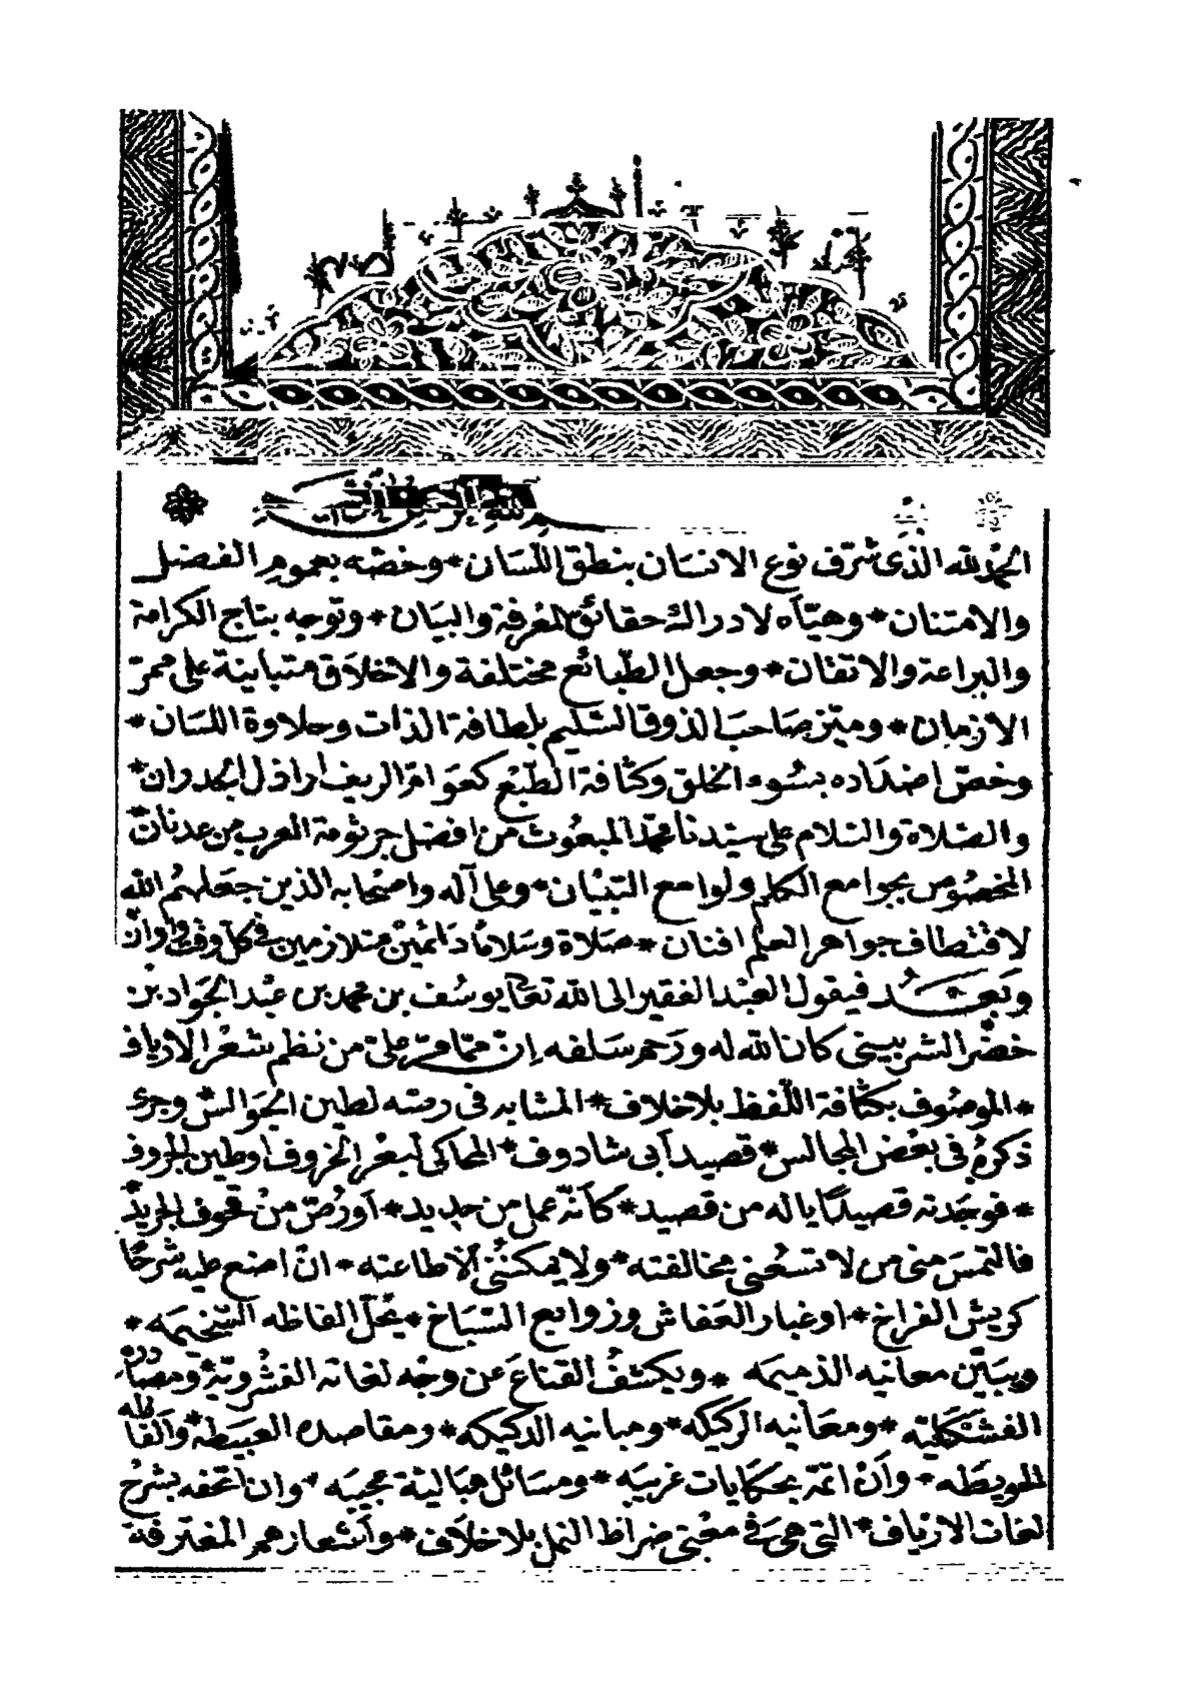 بسم الله الرحمن الرحيم
الحمد لله الذى شرّف نوع الانسان بنطق اللّسان * وخصّه بعموم الفضل
والامتنان * وهيّأه لادراك حقائق المعرفة والبيان * وتوجه بتاج الكرامة
والبراعة والاتقان * وجعل الطّبائع مختلفة والاخلاق متباينة على ممرّ
الازمان * وميّز صاحب الذوق السّليم بلطافة الذات وحلاوة اللسان *
وخصّ اضداده بسُوء الخلق وكثافة الطّبْع كعوامّ الريف اراذل الجدران *
والصّلاة والسّلام على سيّدنا محمّد المبعُوث من افضل جرثومة العرب من عدنان *
المخصُوص بجوامع الكلم ولوامع التبيان * وعلى آله واصحابه الذين جعلهُم الله
لاقتطاف جواهر العلم افنان * صلاة وسَلامًا دَائمَيْن متلازمين فى كلّ وقت وأوان
وبَعـــد فيقول العبْد الفقير الى الله تعالى يوسُف بن محمد بن عبْد الجوَاد بن
خضْر الشربينى كان الله له ورَحم سَلفه إنّ ممّا مرّ علىّ من نظم شعْر الارياف
* الموصُوف بكثافة اللّفظ بلا خلاف * المشابه فى رصّه لطين الجوالس * وجرى
ذكرهُ فى بعْض المجالس * قصيد أبى شادوف * المحاكى لبعْر الخروف أوطين الجروف
* فوجَدته قصيدًا ياله من قصيد * كأنّه عمل من حديد * أورُصّ منْ قحوف الجريد *
فالتمسَ منى من لا تسَعُنى مخالفته * ولا يمكنُنى إلّا طاعته * انّ اضع عليه شرحًا
كريش الفراخ * اوغبار العفاش وزوابع السّبَاخ * يحُلّ الفاظه السّخيمه *
ويبيّن معانيه الذميمه * ويكشفُ القناعَ عن وجْه لغاته الفشْرويّة * ومصَادره
الفشكَليّه * ومعَانيه الركيكه * ومبانيه الدكيكه * ومقاصده العبيطة * وألفاظه
الحويطه * وأنْ اتمّه بحكايات غريبَه * ومسَائل هباليّة عجيبَه * وان اتحفه بشرْح
لغات الارياف * التى هى فى معْنى ضراط النمل بلا خلاف * وأشعارهم المغترفة